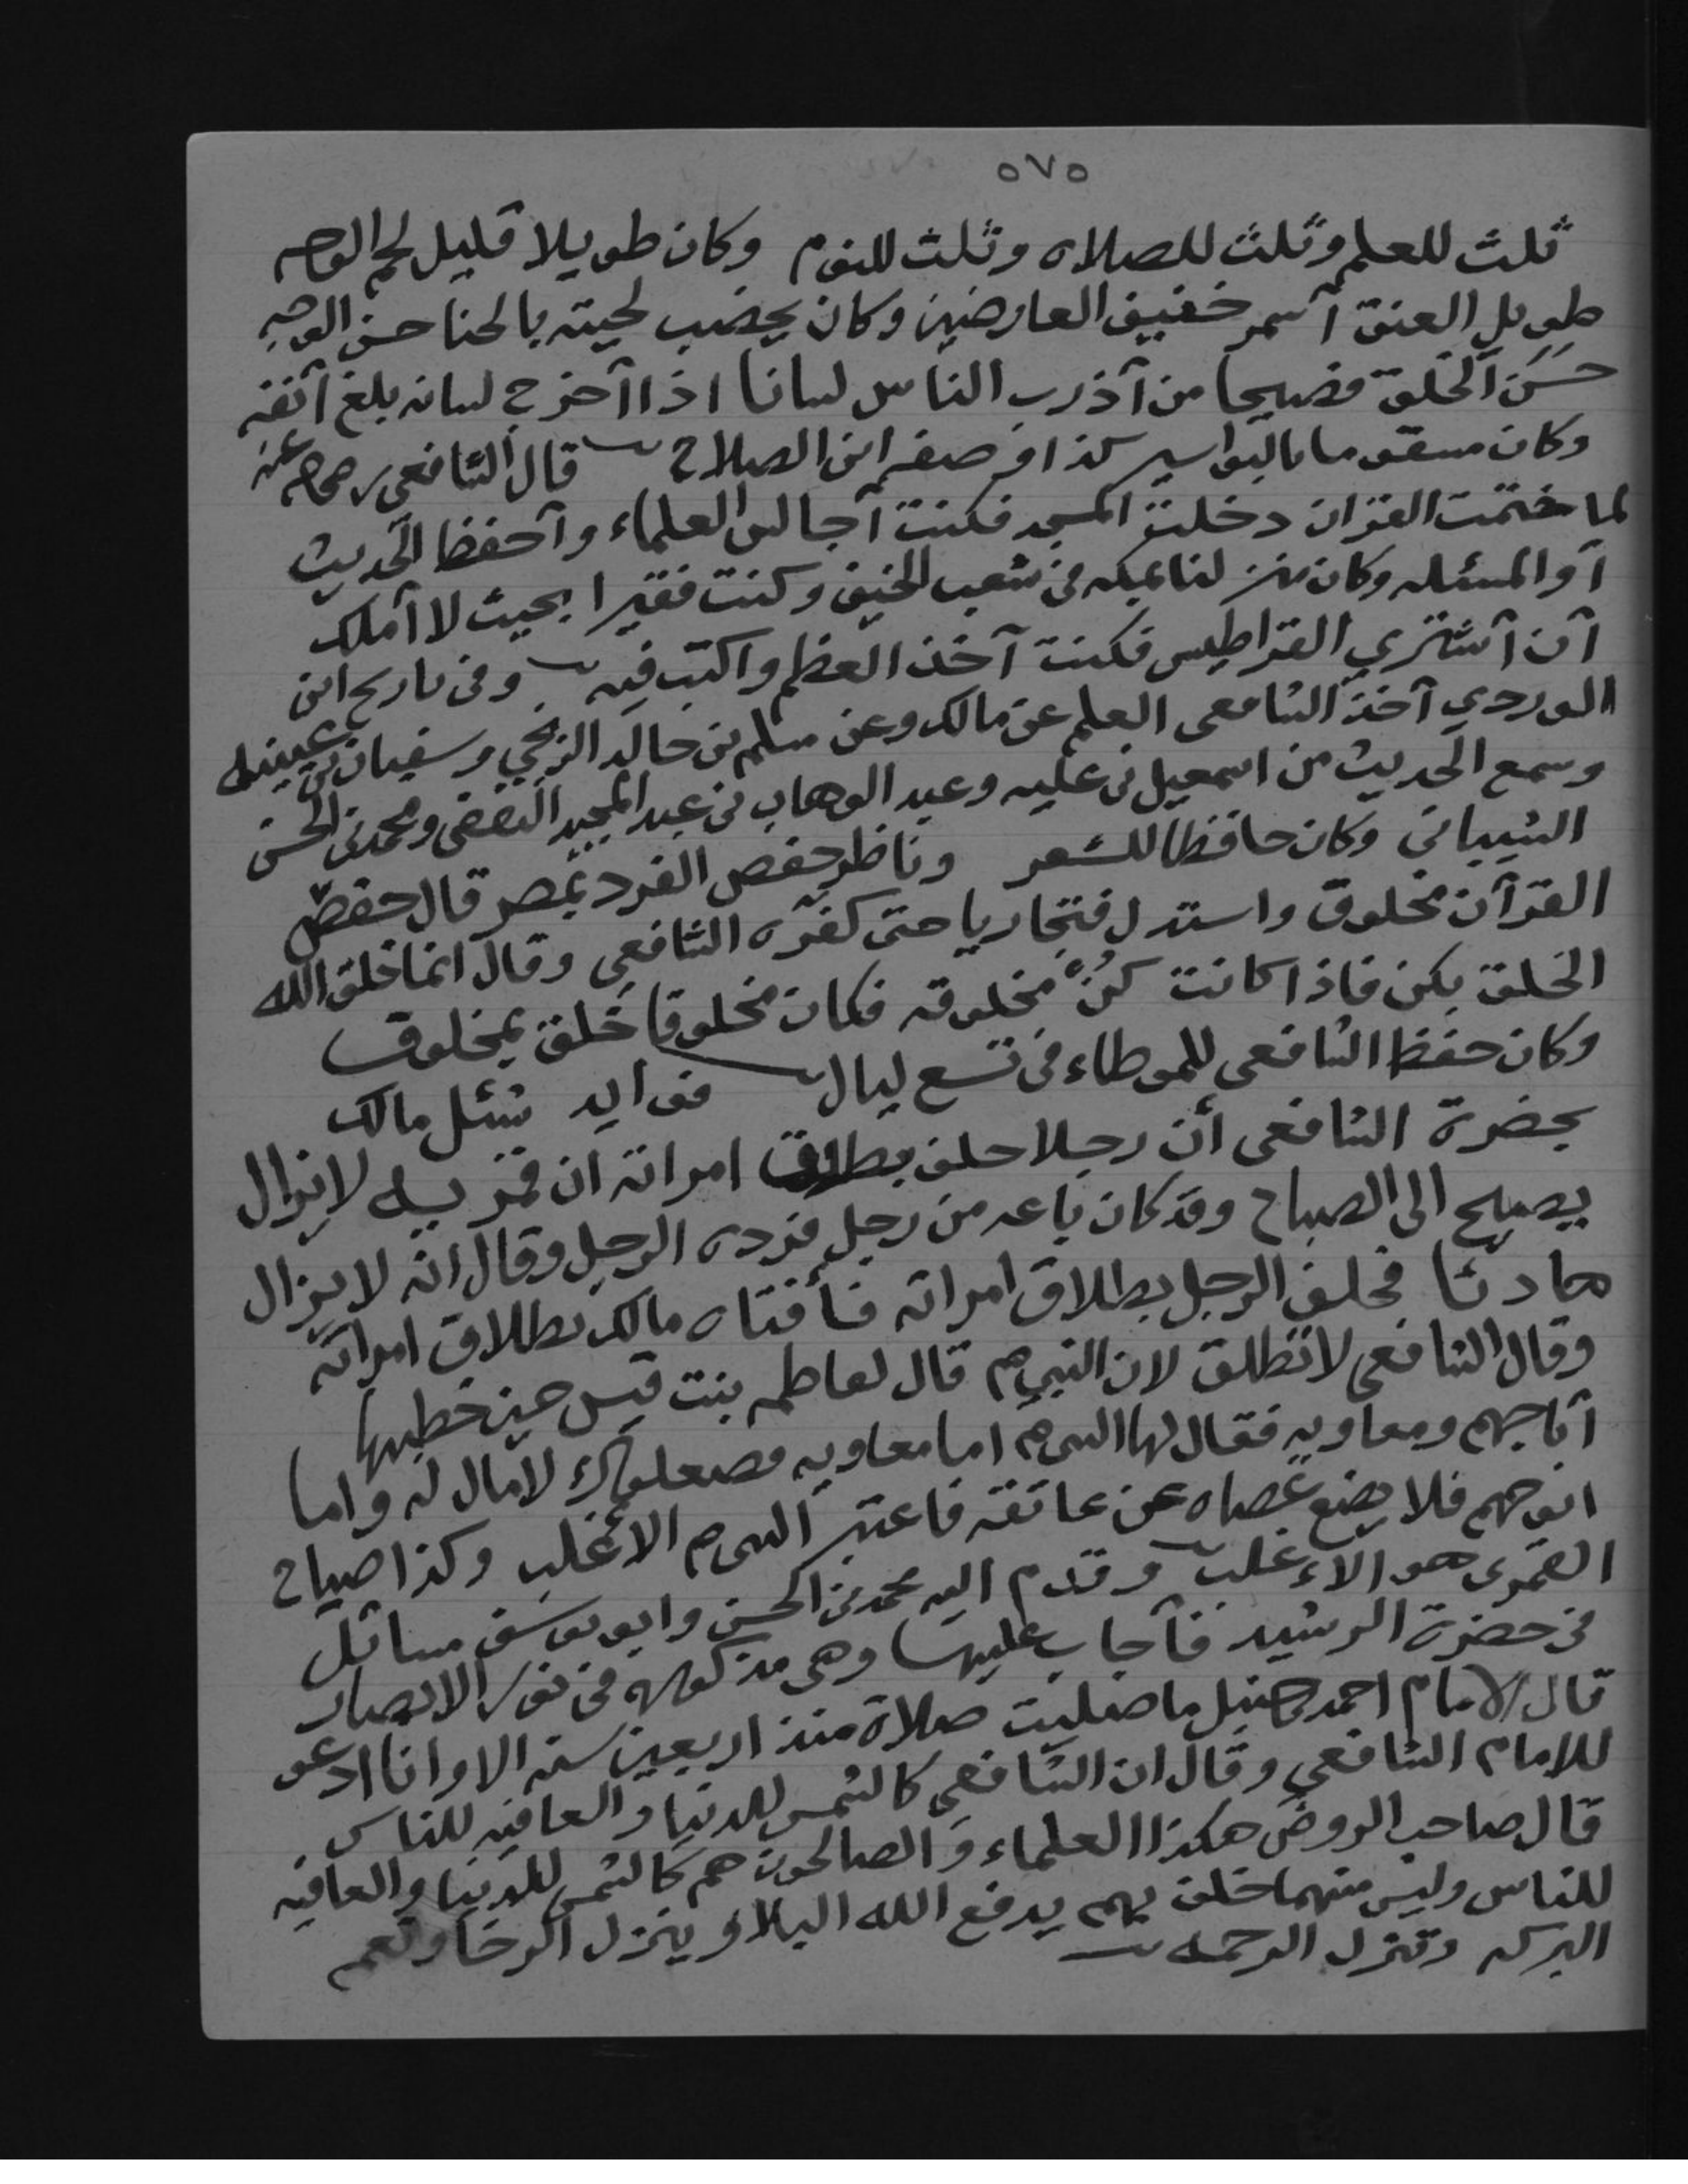 ٥٧٥
ثلث للعلم وثلث للصلاه وثلث للنوم وكان طويلا قليل لحم الوجه
طويل العنق أسمر خفيف العارضين وكان يخضب لحيته بالحنا حسن الوجه
حَسَنَ الخلق فصيحا من آذرب الناس لسانا اذا آخرج لسانه بلغ آنفه
وكان مسقوما بالبواسير كذا وصفه ابن الصلاح قال الشافعي رضي الله عنه
لما ختمت القران دخلت المسجد فكنت آجالس العلماء وآحفظ الحديث
آو المسئله وكان منزلنا بمكه في شعب الخيف وكنت فقيرا بحيث لا آملك
آن آشتري القراطيس فكنت آخذ العظم واكتب فيه وفي تاريخ ابن
الوردي آخذ الشافعي العلم عن مالك وعن مسلم بن خالد الزنجي وسفيان بن عيينه
وسمع الحديث من اسمعيل بن عليه وعبد الوهاب بن عبد المجيد الثقفي ومحمد بن الحسن
الشيباني وكان حافظا للشعر وناظر حفص الفرد بمصر قال حفص
القرآن مخلوق واستدل فتجاريا حتى كفره الشافعي وقال انما خلق الله
الخلق بكن فاذا كانت كُنْ مخلوقه فكان مخلوقا خلق بمخلوق
وكان حفظ الشافعي للموطاء في تسع ليال فوايد سُئل مالك
بحضرة الشافعي أن رجلا حلف بطلاق امراته ان قمريه لايزال
يصيح الى الصباح وقد كان باعه من رجل فرده الرجل وقال انه لا يزال
هادئا فحلف الرجل بطلاق امراته فأفتاه مالك بطلاق امراته
وقال الشافعي لا تطلق لان النبي م قال لفاطمه بنت قيس حين خطبها
آباجهم ومعاويه فقال لها النبي م اما معاويه فصعلوك لا مال له واما
ابو جهم فلا يضع عصاه عن عاتقه فاعتبر النبي م الاغلب وكذا صياح
القمري هو الاءغلب وقدم اليه محمد بن الحسن وابو يوسف مسائل
في حضرة الرشيد فآجاب عليها وهي مذكوره في نور الابصار
قال الامام احمد بن حنبل ما صليت صلاة منذ اربعين سنه الا وانا ادعو
للامام الشافعي وقال ان الشافعي كالشمس للدنيا والعافيه للناس
قال صاحب الروض هكذا العلماء و الصالحون هم كالشمس للدنيا والعافيه
للناس وليس منهما خلف بهم يدفع الله البلاء وينزل الرخا وتعم
البركه وتنزل الرحمه